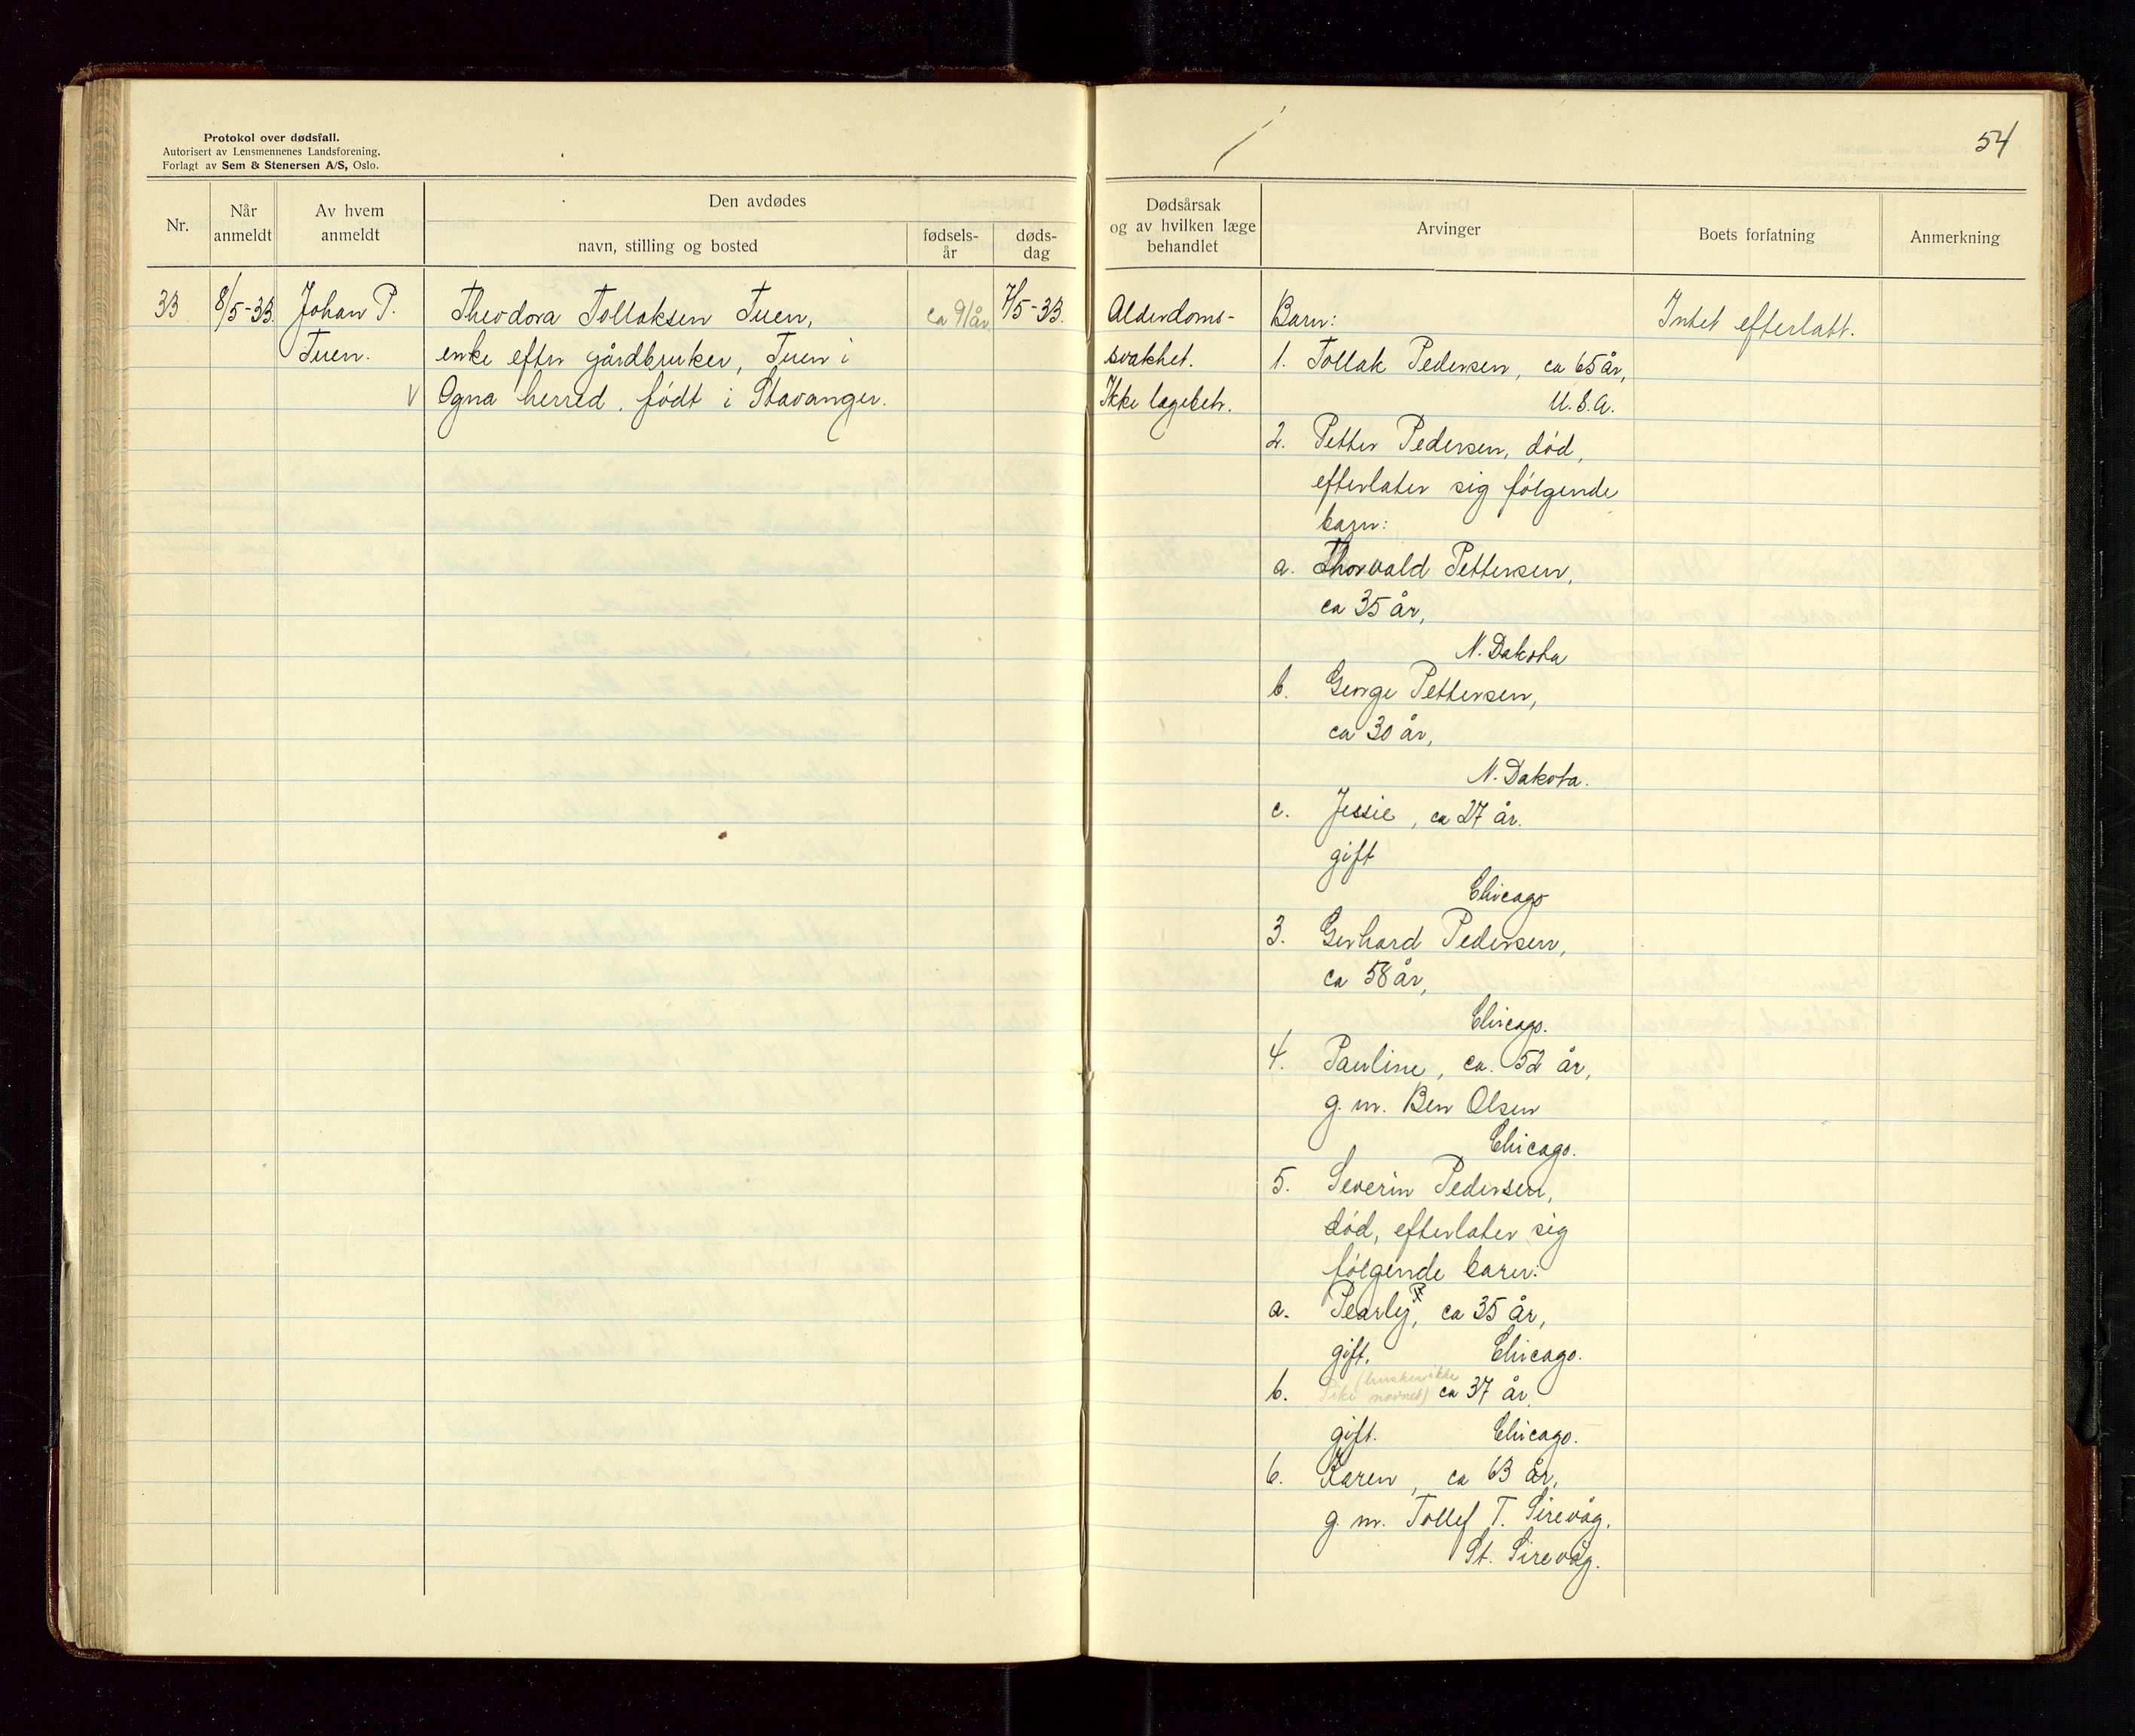 Protokol over dødsfall.
Autorisert av Lensmennenes Landsforening.
Forlagt av Sem & Stenersen A/S, Oslo.
54
Nr.
Når anmeldt
Av hvem anmeldt
Den avdødes
navn, stilling og bosted
fødsels-
år
døds-
dag
Dødsårsak
og av hvilken læge
behandlet
Arvinger
Boets forfatning
Anmerkning
33 8/5-33. Johan P. Theodora Tollaksen Tuen, ca 91 år 7/5-33.
Tuen. enke efter gårdbruker, Tuen i
V Ogna herred. født i Stavanger.
Alderdoms-
svakhet.
Ikke lægebeh.
Barn:
1. Tollak Pedersen, ca 65 år,
U.S.A.
2. Petter Pedersen, død,
efterlater sig følgende
barn:
a. Thorvald Pettersen,
ca 35 år,
N. Dakota
b. George Pettersen,
ca 30 år,
N. Dakota.
c. Jessie, ca 27 år.
gift
Chicago
3. Gerhard Pedersen,
ca 58 år,
Chicago.
4. Pauline, ca. 52 år,
g. m. Ben Olsen
Chicago.
5. Severin Pedersen,
død, efterlater sig
følgende barn:
a. Pearly, ca 35 år,
gift. Chicago.
b. Pike (husker ikke navnet) ca 37 år,
gift. Chicago.
6. Karen, ca 63 år,
g. m. Tollef T. Sirevåg.
St. Sirevåg.
Intet efterlatt.